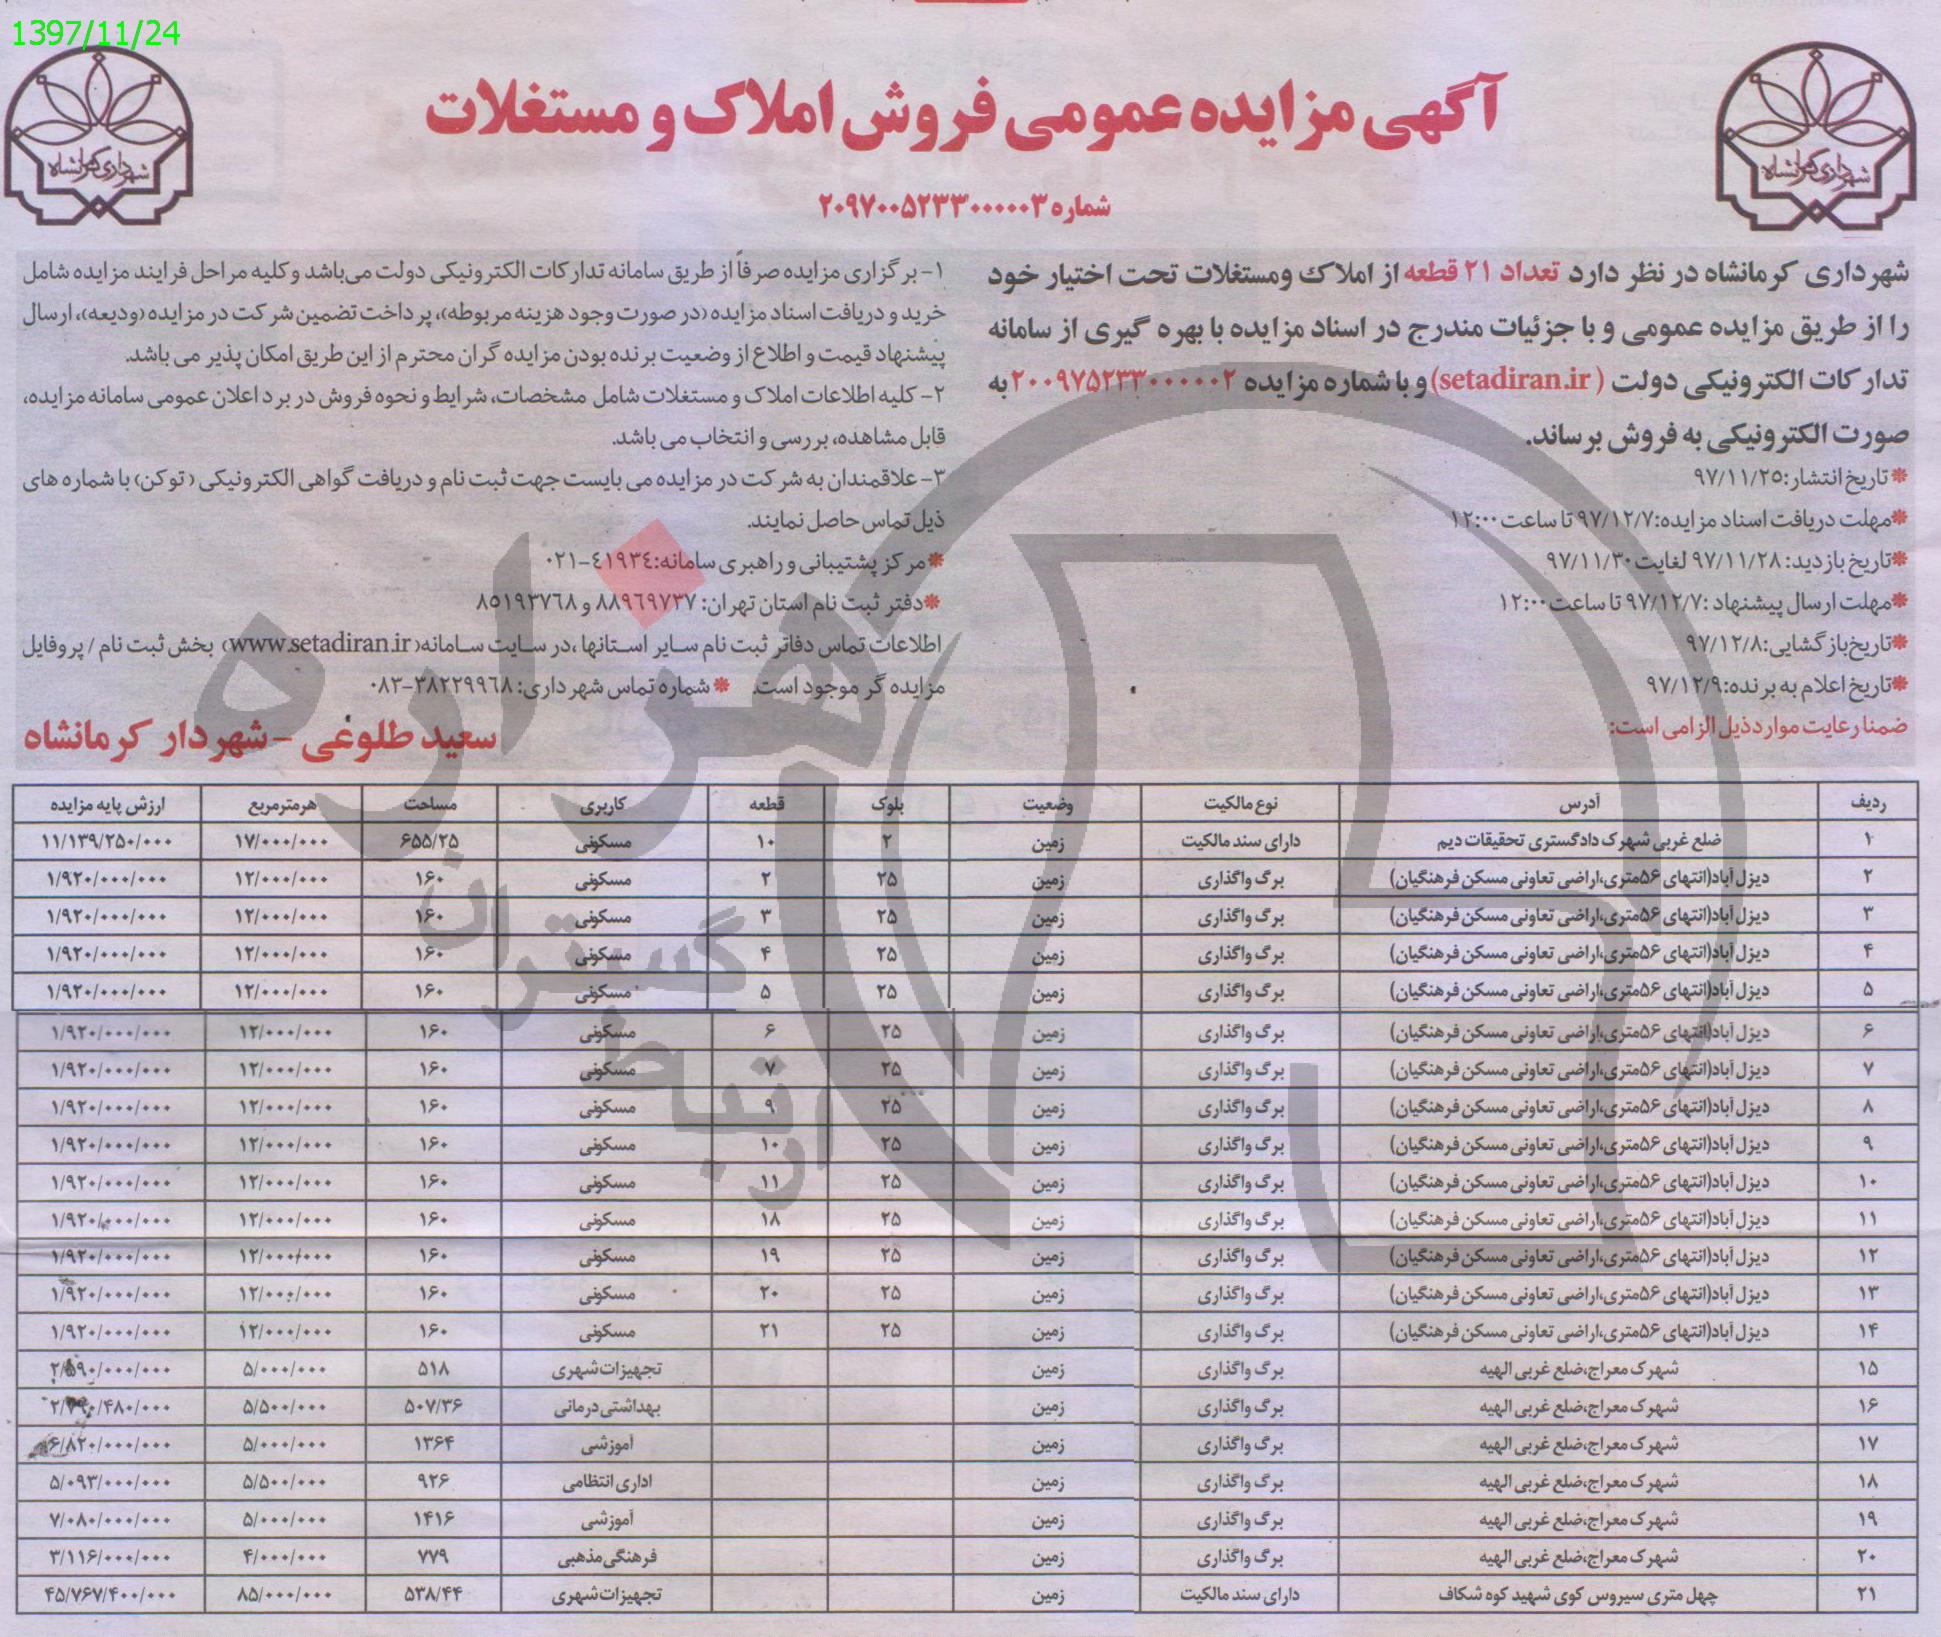 1397/11/24
آگهی مزایده عمومی فروش املاک و مستغلات
شهرداری کرمانشاه
شهرداری کرمانشاه
شماره ۲۰۹۷۰۰۵۲۳۳۰۰۰۰۰۳
شهرداری کرمانشاه در نظر دارد تعداد ۲۱ قطعه از املاک ومستغلات تحت اختیار خود
را از طریق مزایده عمومی و با جزئیات مندرج در اسناد مزایده با بهره گیری از سامانه
تدارکات الکترونیکی دولت (setadiran.ir) و با شماره مزایده ۲۰۰۹۷۵۲۳۳۰۰۰۰۰۲ به
صورت الکترونیکی به فروش برساند.
*تاریخ انتشار:۹۷/۱۱/۲۵
*مهلت دریافت اسناد مزایده:۹۷/۱۲/۷ تا ساعت ۱۲:۰۰
*تاریخ بازدید: ۹۷/۱۱/۲۸ لغایت ۹۷/۱۱/۳۰
*مهلت ارسال پیشنهاد :۹۷/۱۲/۷ تا ساعت ۱۲:۰۰
*تاریخ بازگشایی:۹۷/۱۲/۸
*تاریخ اعلام به برنده:۹۷/۱۲/۹
ضمنا رعایت موارد ذیل الزامی است:
۱- برگزاری مزایده صرفاً از طریق سامانه تدارکات الکترونیکی دولت می‌باشد و کلیه مراحل فرایند مزایده شامل
خرید و دریافت اسناد مزایده (در صورت وجود هزینه مربوطه)، پرداخت تضمین شرکت در مزایده (ودیعه)، ارسال
پیشنهاد قیمت و اطلاع از وضعیت برنده بودن مزایده گران محترم از این طریق امکان پذیر می باشد.
۲- کلیه اطلاعات املاک و مستغلات شامل مشخصات، شرایط و نحوه فروش در برد اعلان عمومی سامانه مزایده،
قابل مشاهده، بررسی و انتخاب می باشد.
۳- علاقمندان به شرکت در مزایده می بایست جهت ثبت نام و دریافت گواهی الکترونیکی (توکن) با شماره های
ذیل تماس حاصل نمایند.
*مرکز پشتیبانی و راهبری سامانه:۴۱۹۳۴-۰۲۱
*دفتر ثبت نام استان تهران: ۸۸۹۶۹۷۳۷ و ۸۵۱۹۳۷۶۸
اطلاعات تماس دفاتر ثبت نام سایر استانها ،در سایت سامانه( www.setadiran.ir) بخش ثبت نام / پروفایل
مزایده گر موجود است. * شماره تماس شهرداری: ۳۸۲۲۹۹۶۸-۰۸۳
سعید طلوعی - شهردار کرمانشاه
هزاره
گستران
ارتباط
ردیف آدرس نوع مالکیت وضعیت بلوک قطعه کاربری مساحت هرمترمربع ارزش پایه مزایده
۱ ضلع غربی شهرک دادگستری تحقیقات دیم دارای سند مالکیت زمین ۲ ۱۰ مسکونی ۶۵۵/۲۵ ۱۷/۰۰۰/۰۰۰ ۱۱/۱۳۹/۲۵۰/۰۰۰
۲ دیزل آباد(انتهای ۵۶متری،اراضی تعاونی مسکن فرهنگیان) برگ واگذاری زمین ۲۵ ۲ مسکونی ۱۶۰ ۱۲/۰۰۰/۰۰۰ ۱/۹۲۰/۰۰۰/۰۰۰
۳ دیزل آباد(انتهای ۵۶متری،اراضی تعاونی مسکن فرهنگیان) برگ واگذاری زمین ۲۵ ۳ مسکونی ۱۶۰ ۱۲/۰۰۰/۰۰۰ ۱/۹۲۰/۰۰۰/۰۰۰
۴ دیزل آباد(انتهای ۵۶متری،اراضی تعاونی مسکن فرهنگیان) برگ واگذاری زمین ۲۵ ۴ مسکونی ۱۶۰ ۱۲/۰۰۰/۰۰۰ ۱/۹۲۰/۰۰۰/۰۰۰
۵ دیزل آباد(انتهای ۵۶متری،اراضی تعاونی مسکن فرهنگیان) برگ واگذاری زمین ۲۵ ۵ مسکونی ۱۶۰ ۱۲/۰۰۰/۰۰۰ ۱/۹۲۰/۰۰۰/۰۰۰
۶ دیزل آباد(انتهای ۵۶متری،اراضی تعاونی مسکن فرهنگیان) برگ واگذاری زمین ۲۵ ۶ مسکونی ۱۶۰ ۱۲/۰۰۰/۰۰۰ ۱/۹۲۰/۰۰۰/۰۰۰
۷ دیزل آباد(انتهای ۵۶متری،اراضی تعاونی مسکن فرهنگیان) برگ واگذاری زمین ۲۵ ۷ مسکونی ۱۶۰ ۱۲/۰۰۰/۰۰۰ ۱/۹۲۰/۰۰۰/۰۰۰
۸ دیزل آباد(انتهای ۵۶متری،اراضی تعاونی مسکن فرهنگیان) برگ واگذاری زمین ۲۵ ۹ مسکونی ۱۶۰ ۱۲/۰۰۰/۰۰۰ ۱/۹۲۰/۰۰۰/۰۰۰
۹ دیزل آباد(انتهای ۵۶متری،اراضی تعاونی مسکن فرهنگیان) برگ واگذاری زمین ۲۵ ۱۰ مسکونی ۱۶۰ ۱۲/۰۰۰/۰۰۰ ۱/۹۲۰/۰۰۰/۰۰۰
۱۰ دیزل آباد(انتهای ۵۶متری،اراضی تعاونی مسکن فرهنگیان) برگ واگذاری زمین ۲۵ ۱۱ مسکونی ۱۶۰ ۱۲/۰۰۰/۰۰۰ ۱/۹۲۰/۰۰۰/۰۰۰
۱۱ دیزل آباد(انتهای ۵۶متری،اراضی تعاونی مسکن فرهنگیان) برگ واگذاری زمین ۲۵ ۱۸ مسکونی ۱۶۰ ۱۲/۰۰۰/۰۰۰ ۱/۹۲۰/۰۰۰/۰۰۰
۱۲ دیزل آباد(انتهای ۵۶متری،اراضی تعاونی مسکن فرهنگیان) برگ واگذاری زمین ۲۵ ۱۹ مسکونی ۱۶۰ ۱۲/۰۰۰/۰۰۰ ۱/۹۲۰/۰۰۰/۰۰۰
۱۳ دیزل آباد(انتهای ۵۶متری،اراضی تعاونی مسکن فرهنگیان) برگ واگذاری زمین ۲۵ ۲۰ مسکونی ۱۶۰ ۱۲/۰۰۰/۰۰۰ ۱/۹۲۰/۰۰۰/۰۰۰
۱۴ دیزل آباد(انتهای ۵۶متری،اراضی تعاونی مسکن فرهنگیان) برگ واگذاری زمین ۲۵ ۲۱ مسکونی ۱۶۰ ۱۲/۰۰۰/۰۰۰ ۱/۹۲۰/۰۰۰/۰۰۰
۱۵ شهرک معراج،ضلع غربی الهیه برگ واگذاری زمین تجهیزات شهری ۵۱۸ ۵/۰۰۰/۰۰۰ ۲/۵۹۰/۰۰۰/۰۰۰
۱۶ شهرک معراج،ضلع غربی الهیه برگ واگذاری زمین بهداشتی درمانی ۵۰۷/۳۶ ۵/۵۰۰/۰۰۰ ۲/۷۹۰/۴۸۰/۰۰۰
۱۷ شهرک معراج،ضلع غربی الهیه برگ واگذاری زمین آموزشی ۱۳۶۴ ۵/۰۰۰/۰۰۰ ۶/۸۲۰/۰۰۰/۰۰۰
۱۸ شهرک معراج،ضلع غربی الهیه برگ واگذاری زمین اداری انتظامی ۹۲۶ ۵/۵۰۰/۰۰۰ ۵/۰۹۳/۰۰۰/۰۰۰
۱۹ شهرک معراج،ضلع غربی الهیه برگ واگذاری زمین آموزشی ۱۴۱۶ ۵/۰۰۰/۰۰۰ ۷/۰۸۰/۰۰۰/۰۰۰
۲۰ شهرک معراج،ضلع غربی الهیه برگ واگذاری زمین فرهنگی مذهبی ۷۷۹ ۴/۰۰۰/۰۰۰ ۳/۱۱۶/۰۰۰/۰۰۰
۲۱ چهل متری سیروس کوی شهید کوه شکاف دارای سند مالکیت زمین تجهیزات شهری ۵۳۸/۴۴ ۸۵/۰۰۰/۰۰۰ ۴۵/۷۶۷/۴۰۰/۰۰۰